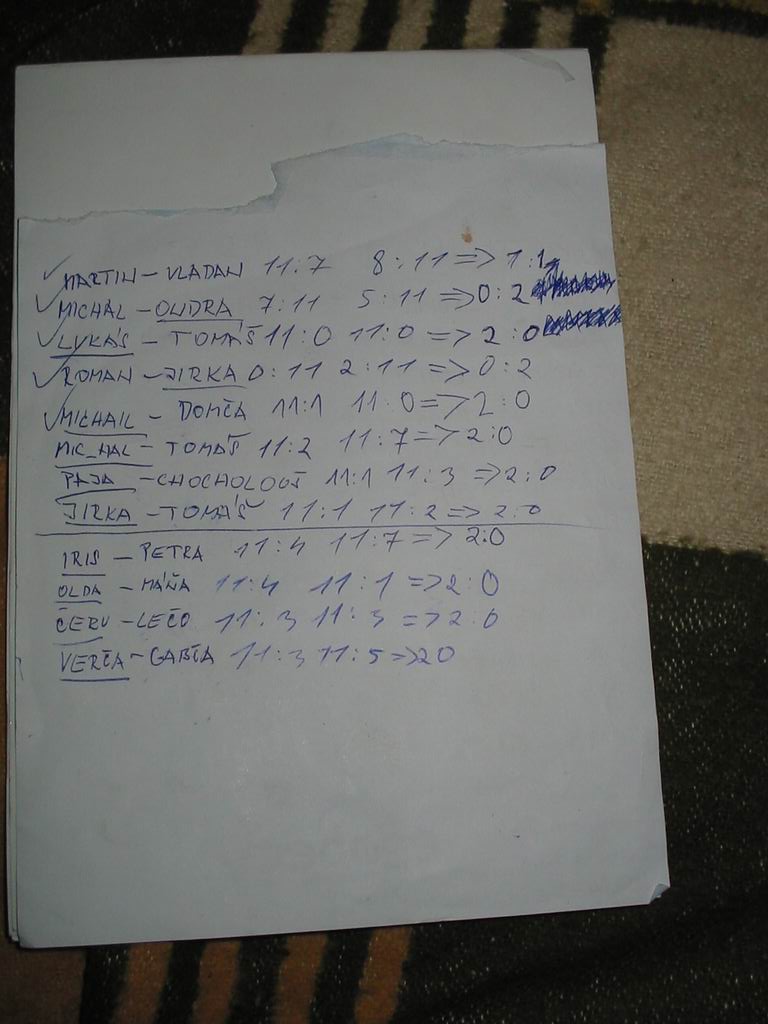 ✓MARTIN – VLADAN 11:7 8:11 => 1:1
✓MICHAL – ONDRA 7:11 5:11 => 0:2
✓LUKÁŠ – TOMÁŠ 11:0 11:0 => 2:0
✓ROMAN – JIRKA 0:11 2:11 => 0:2
✓MICHAIL – DOMČA 11:1 11:0 => 2:0
MIC_HAL – TOMAŠ 11:2 11:7 => 2:0
PAJA – CHOCHOLOUŠ 11:1 11:3 => 2:0
JIRKA – TOMÁŠ 11:1 11:2 => 2:0
IRIS – PETRA 11:4 11:7 => 2:0
OLDA – MÁŇA 11:4 11:1 => 2:0
ČERV – LEČO 11:3 11:3 => 2:0
VERČA – GABČA 11:3 11:5 => 20